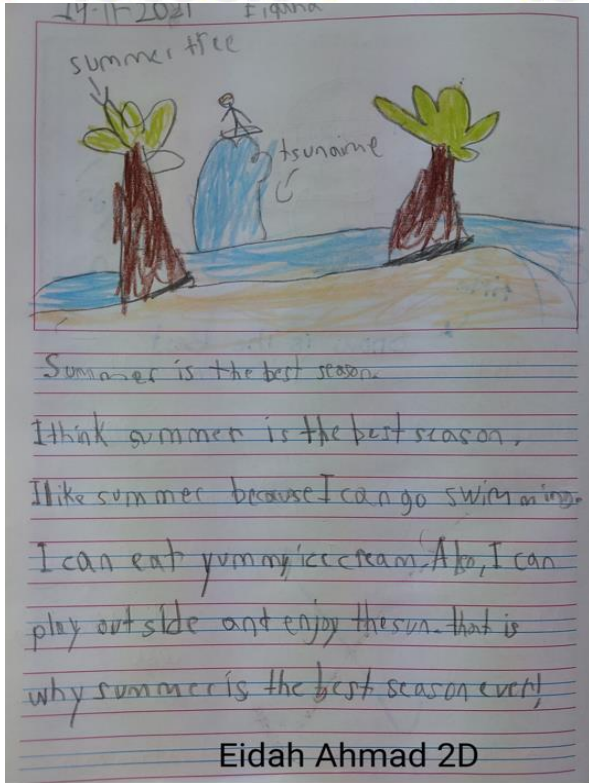 summer tree
tsuname
Summer is the best season.
I think summer is the best season.
I like summer because I can go swimming.
I can eat yummy icecream. Also, I can
play outside and enjoy the sun. that is
why summer is the best season ever!
Eidah Ahmad 2D